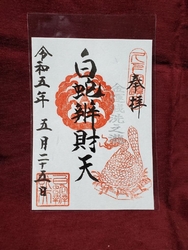 奉拝
白蛇辨財天
令和五年 五月二十五日